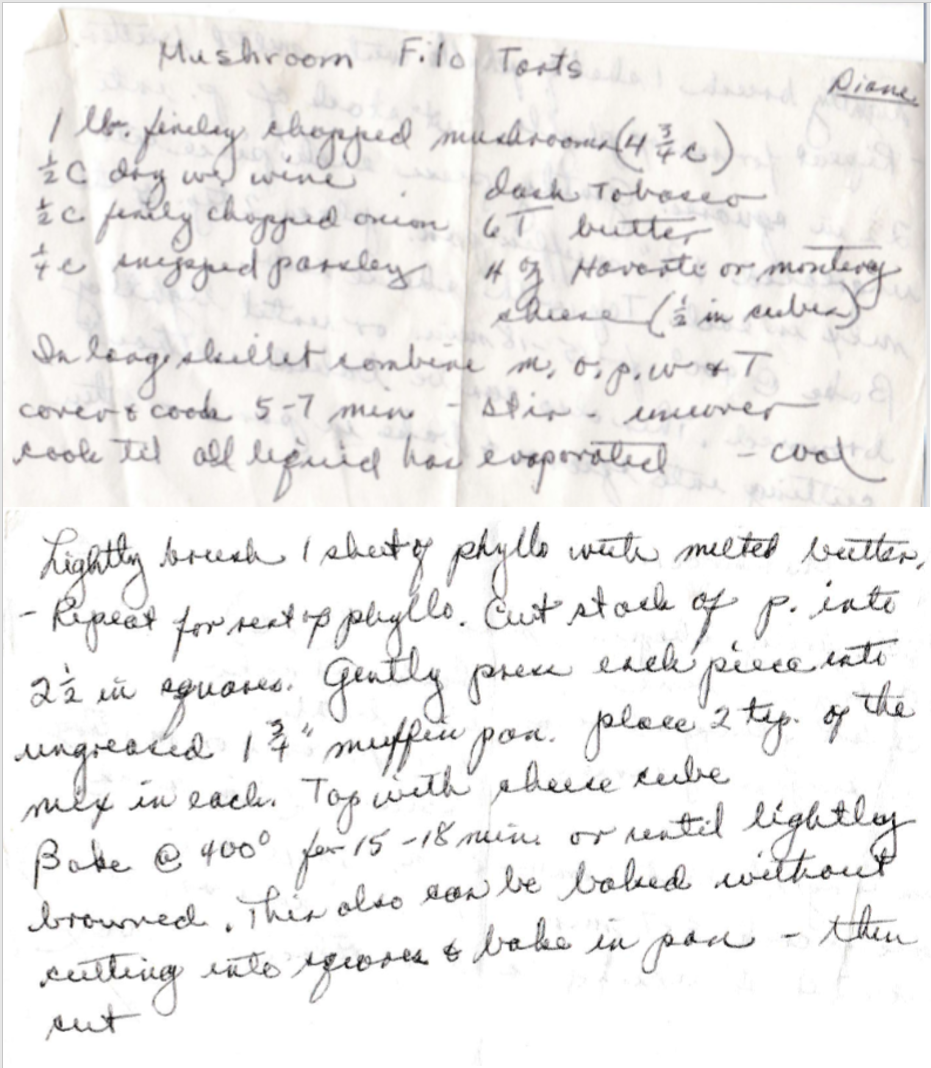 Mushroom Filo Tarts
Diane
1 lb. finely chopped mushrooms (4 3/4 c)
1/2 C dry wh wine
dash Tobasco
1/2 c finely chopped onion
6 T butter
1/4 c snipped parsley
4 oz Havarte or monterey
cheese (1/2 in cubes)
In large skillet combine m. o. p. w & T
cover & cook 5-7 min - stir - uncover
cook til all liquid has evaporated - cool
Lightly brush 1 sheet of phyllo with melted butter.
- Repeat for rest of phyllo. Cut stack of p. into
2 1/2 in squares. Gently press each piece into
ungreased 1 3/4" muffin pan. place 2 tsp. of the
mix in each. Top with cheese cube
Bake @ 400° for 15-18 min. or until lightly
browned. This also can be baked without
cutting into squares & bake in pan - then
cut